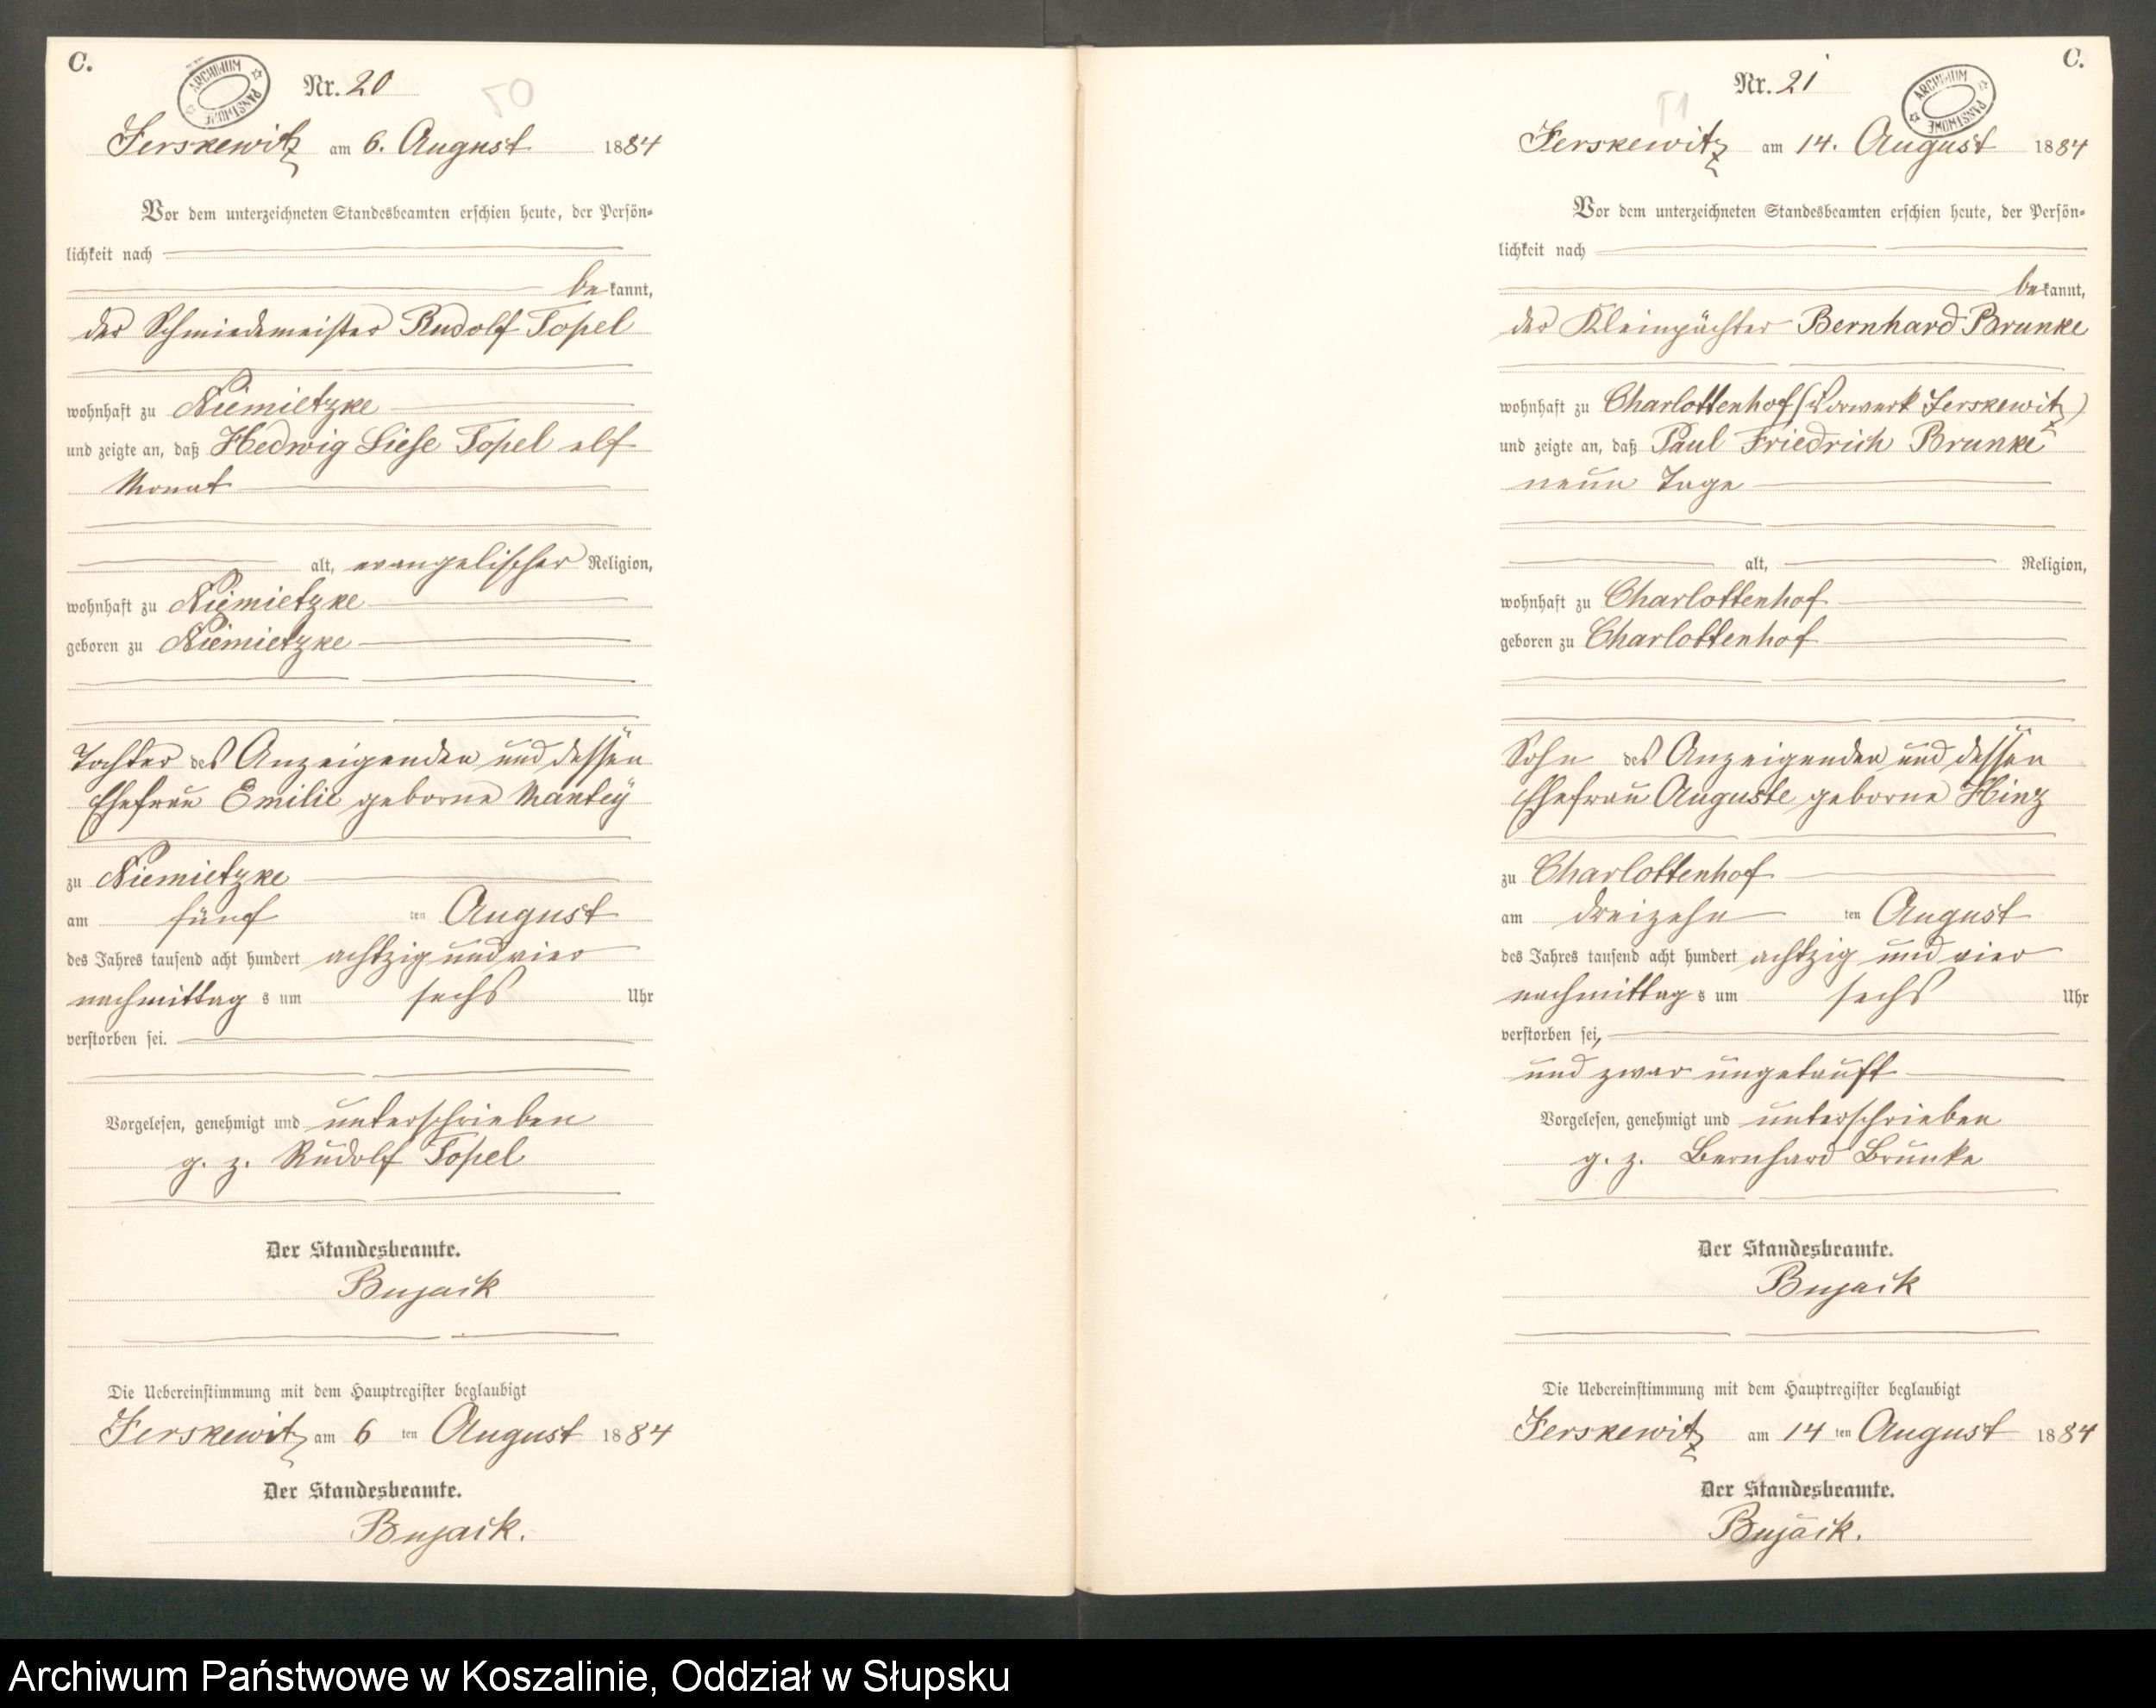 C.
ARCHIWUM PAŃSTWOWE
Nr. 20
50
Jerskewitz am 6. August 1884
Vor dem unterzeichneten Standesbeamten erschien heute, der Persön-
lichkeit nach
bekannt,
der Schmiedemeister Rudolf Topel
wohnhaft zu Niemietzke
und zeigte an, daß Hedwig Liese Topel elf
Monat
alt, evangelischer Religion,
wohnhaft zu Niemietzke
geboren zu Niemietzke
Tochter des Anzeigenden und dessen
Ehefrau Emilie geborne Mantey
zu Niemietzke
am fünf ten August
des Jahres tausend acht hundert achtzig und vier
nachmittags um sechs Uhr
verstorben sei.
Vorgelesen, genehmigt und unterschrieben
g. z. Rudolf Topel
Der Standesbeamte.
Bujack
Die Uebereinstimmung mit dem Hauptregister beglaubigt
Jerskewitz am 6 ten August 1884
Der Standesbeamte.
Bujack.
C.
ARCHIWUM PAŃSTWOWE
Nr. 21
51
Jerskewitz am 14. August 1884
Vor dem unterzeichneten Standesbeamten erschien heute, der Persön-
lichkeit nach
bekannt,
der Kleinpächter Bernhard Brunke
wohnhaft zu Charlottenhof (Vorwerk Jerskewitz)
und zeigte an, daß Paul Friedrich Brunke
neun Tage
alt, Religion,
wohnhaft zu Charlottenhof
geboren zu Charlottenhof
Sohn des Anzeigenden und dessen
Ehefrau Auguste geborne Hinz
zu Charlottenhof
am dreizehn ten August
des Jahres tausend acht hundert achtzig und vier
nachmittags um sechs Uhr
verstorben sei,
und zwar ungetauft
Vorgelesen, genehmigt und unterschrieben
g. z. Bernhard Brunke
Der Standesbeamte.
Bujack
Die Uebereinstimmung mit dem Hauptregister beglaubigt
Jerskewitz am 14 ten August 1884
Der Standesbeamte.
Bujack.
Archiwum Państwowe w Koszalinie, Oddział w Słupsku